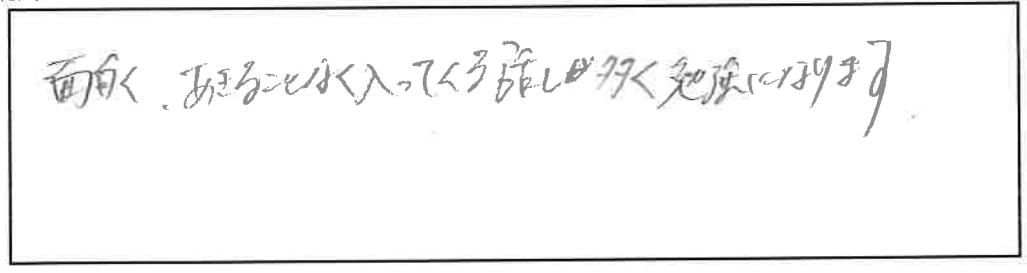 面白く、あきることなく入ってくる話しが多く勉強になります。